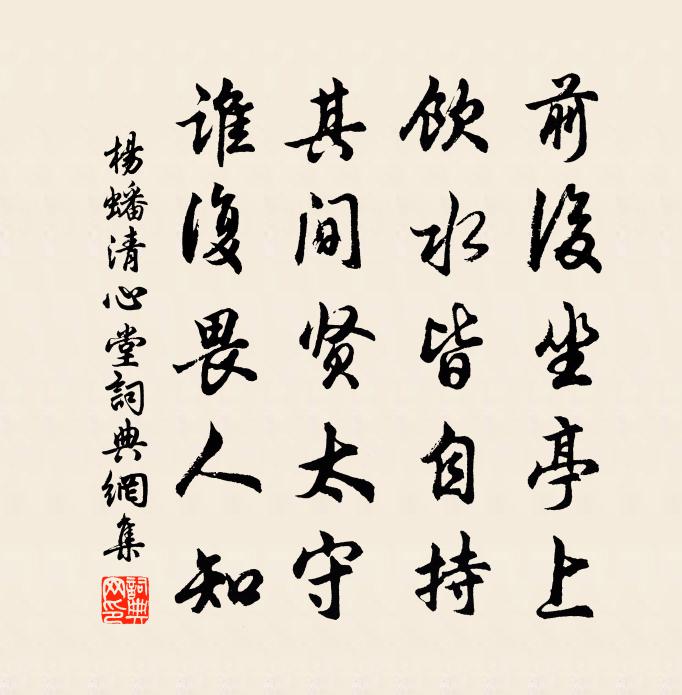 前後坐亭上
飲水皆自持
其间贤太守
誰復畏人知
楊蟠清心堂詞典網集
詞典网印